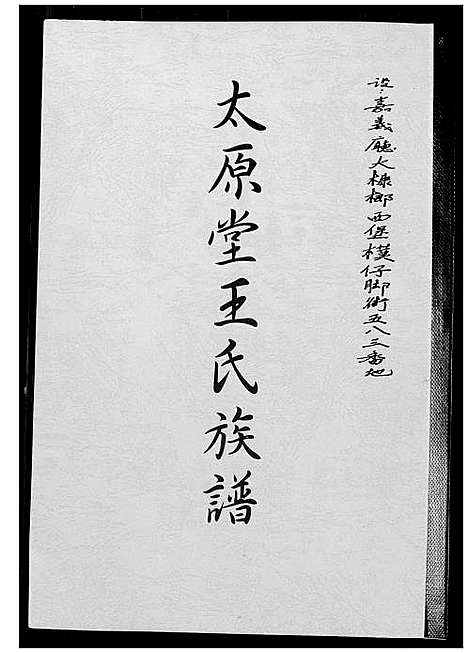 設：嘉義廳大槺榔西堡樸仔脚街五八三番地
太原堂王氏族譜